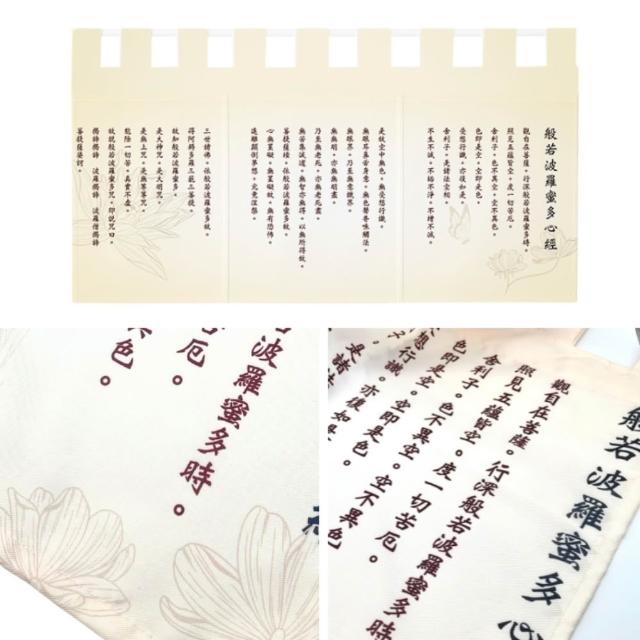 般若波羅蜜多心經
觀自在菩薩。行深般若波羅蜜多時。
照見五蘊皆空。度一切苦厄。
舍利子。色不異空。空不異色。
色即是空。空即是色。
受想行識。亦復如是。
舍利子。是諸法空相。
不生不滅。不垢不淨。不增不減。
是故空中無色。無受想行識。
無眼耳鼻舌身意。無色聲香味觸法。
無眼界。乃至無意識界。
無無明。亦無無明盡。
乃至無老死。亦無老死盡。
無苦集滅道。無智亦無得。以無所得故。
菩提薩埵。依般若波羅蜜多故。
心無罣礙。無罣礙故。無有恐怖。
遠離顛倒夢想。究竟涅槃。
三世諸佛。依般若波羅蜜多故。
得阿耨多羅三藐三菩提。
故知般若波羅蜜多。
是大神咒。是大明咒。
是無上咒。是無等等咒。
能除一切苦。真實不虛。
故說般若波羅蜜多咒。即說咒曰。
揭諦揭諦 波羅揭諦 波羅僧揭諦
菩提薩婆訶。
若波羅蜜多時。
苦厄。
色。
般若波羅蜜多心
觀自在菩薩。行深般若波羅蜜多時
照見五蘊皆空。度一切苦厄。
舍利子。色不異空。空不異色
色即是空。空即是色。
想行識。亦復如是
是諸法